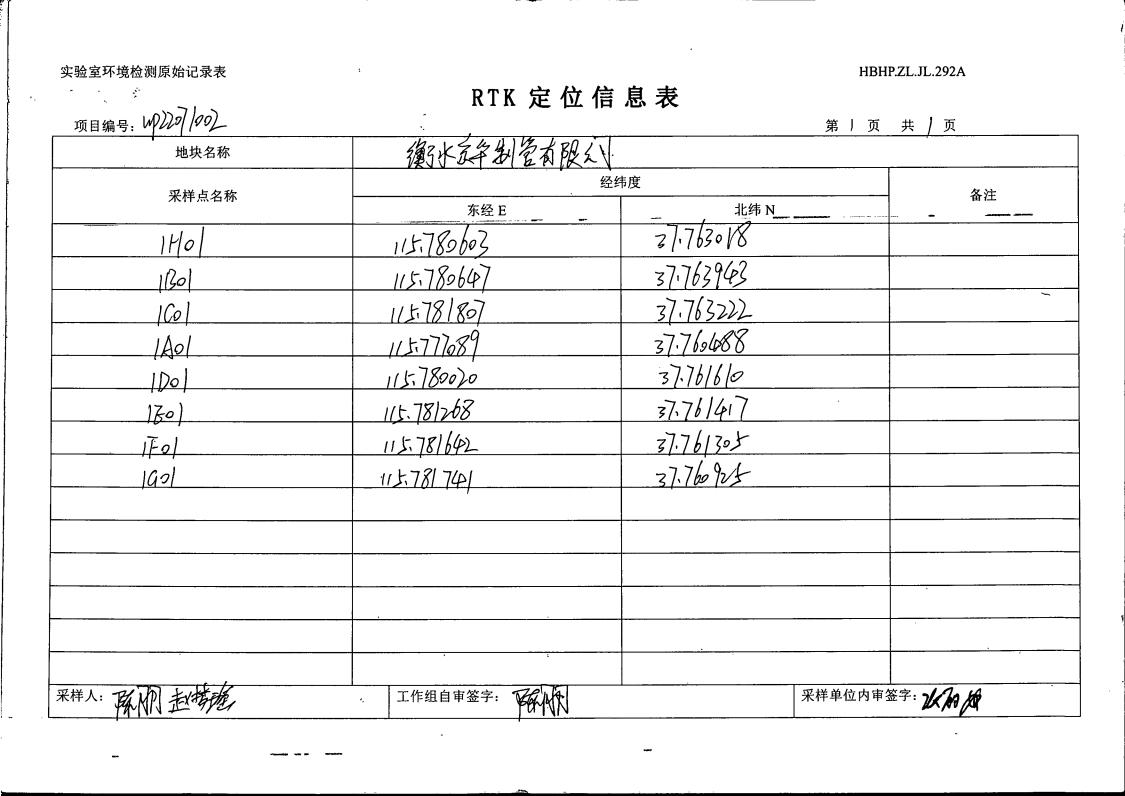 实验室环境检测原始记录表 HBHP.ZL.JL.292A
RTK 定位信息表
项目编号：WP22071002 第 1 页 共 1 页
地块名称 衡水 制管有限公司
采样点名称 经纬度 备注
东经 E 北纬 N
1H01 115.780603 37.763018
1B01 115.780647 37.763943
1C01 115.781807 37.763222
1A01 37.760488
1D01 115.780020 37.761610
1E01 115.781268 37.761417
1F01 115.781642 37.761305
1G01 115.781741 37.760925
采样人： 工作组自审签字： 采样单位内审签字：